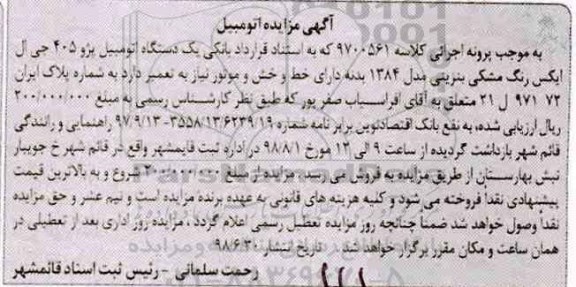 آگهی مزایده اتومبیل
به موجب پرونه اجرائی کلاسه ۹۷۰۰۵۶۱ که به استناد قرارداد بانکی یک دستگاه اتومبیل پژو ۴۰۵ جی ال
ایکس رنگ مشکی بنزینی مدل ۱۳۸۴ بدنه دارای خط و خش و موتور نیاز به تعمیر دارد به شماره پلاک ایران
۷۲ ۹۷۱ ل ۲۱ متعلق به آقای افراسیاب صفرپور که طبق نظر کارشناس رسمی به مبلغ ۲۰۰/۰۰۰/۰۰۰
ریال ارزیابی شده، به نفع بانک اقتصادنوین برابر نامه شماره ۳۵۵۸/۱۳۶۲۳۹/۱۹-۹۷/۹/۱۳ راهنمایی و رانندگی
قائم شهر بازداشت گردیده از ساعت ۹ الی ۱۲ مورخ ۹۸/۸/۱ در اداره ثبت قایمشهر واقع در قائم شهر خ جویبار
نبش بهارستان از طریق مزایده به فروش می رسد. مزایده از مبلغ ۲۰۰/۰۰۰/۰۰۰ شروع و به بالاترین قیمت
پیشنهادی نقدا فروخته می شود و کلیه هزینه های قانونی به عهده برنده مزایده است و نیم عشر و حق مزایده
نقدا وصول خواهد شد ضمنا چنانچه روز مزایده تعطیل رسمی اعلام گردد ، مزایده روز اداری بعد از تعطیلی در
همان ساعت و مکان مقرر برگزار خواهد شد تاریخ انتشار ۹۸/۶/۳۰
رحمت سلمانی - رئیس ثبت اسناد قائمشهر